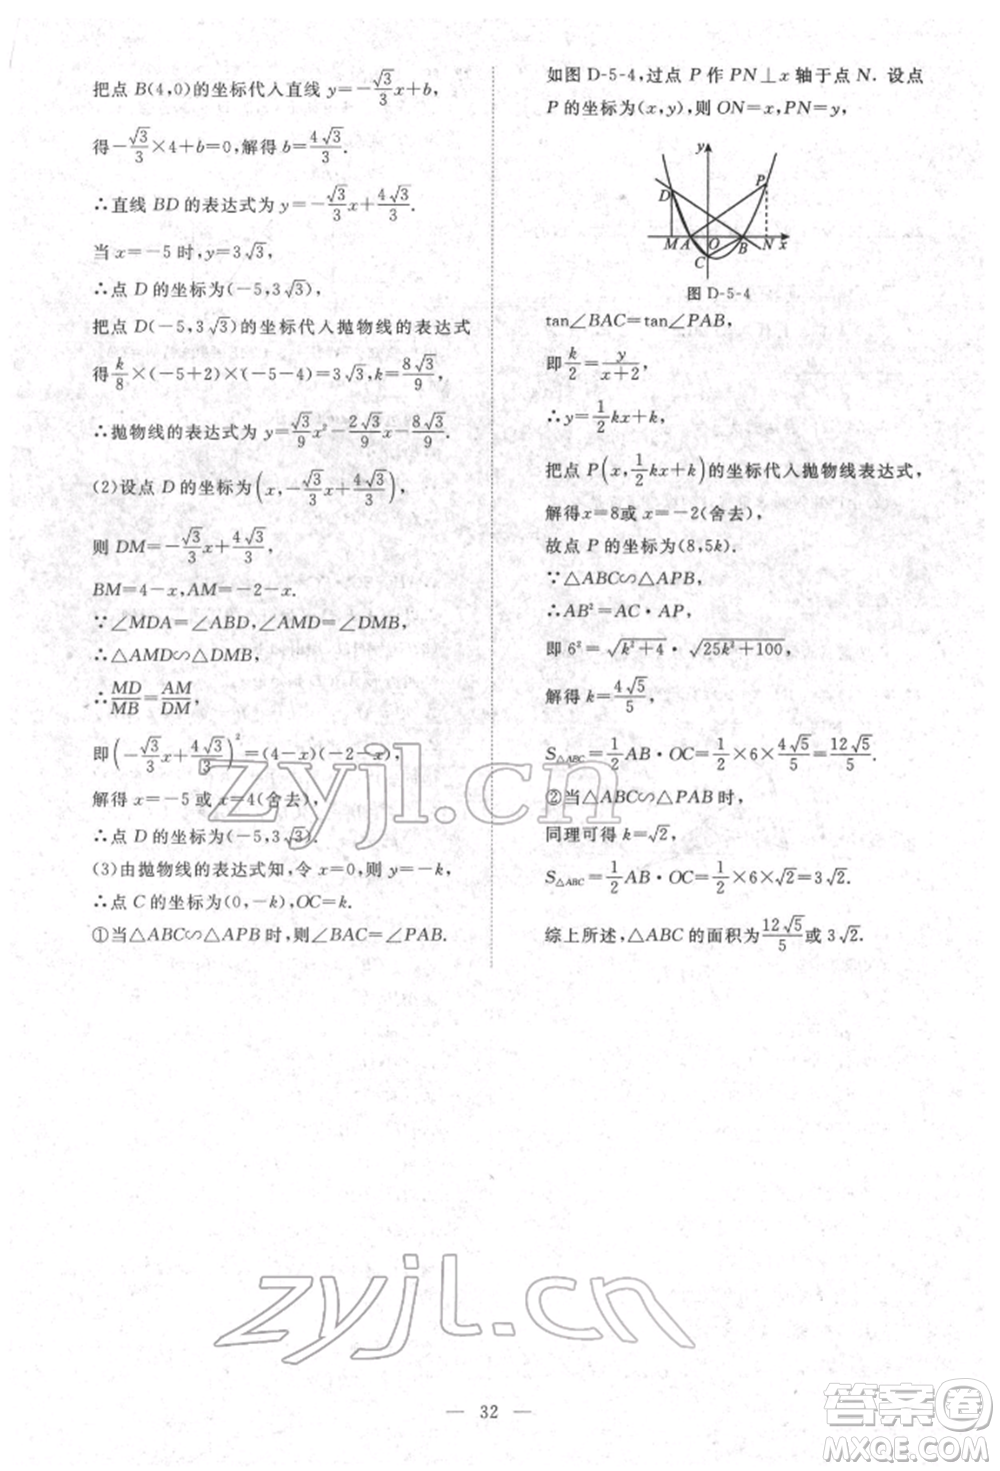 把点 B(4,0)的坐标代入直线 y=-√3/3x+b,
得-√3/3×4+b=0,解得 b=4√3/3.
∴直线 BD的表达式为 y=-√3/3x+4√3/3.
当 x=-5 时,y=3√3,
∴点 D 的坐标为(-5,3√3),
把点 D(-5,3√3)的坐标代入抛物线的表达式
得k/8×(-5+2)×(-5-4)=3√3,k=8√3/9,
∴抛物线的表达式为 y=√3/9x²-2√3/9x-8√3/9.
(2)设点 D 的坐标为(x,-√3/3x+4√3/3),
则 DM=-√3/3x+4√3/3,
BM=4-x,AM=-2-x.
∵∠MDA=∠ABD,∠AMD=∠DMB,
∴△AMD∽△DMB,
∴MD/MB=AM/DM,
即(-√3/3x+4√3/3)²=(4-x)(-2-x),
解得 x=-5 或 x=4(舍去),
∴点 D 的坐标为(-5,3√3).
(3)由抛物线的表达式知,令 x=0,则 y=-k,
∴点 C 的坐标为(0,-k),OC=k.
①当△ABC∽△APB 时,则∠BAC=∠PAB.
如图 D-5-4,过点 P 作 PN⊥x 轴于点 N.设点
P 的坐标为(x,y),则 ON=x,PN=y,
y
D
P
M A O B N x
C
图 D-5-4
tan∠BAC=tan∠PAB,
即k/2=y/(x+2),
∴y=1/2kx+k,
把点 P(x,1/2kx+k)的坐标代入抛物线表达式,
解得 x=8或 x=-2(舍去),
故点 P 的坐标为(8,5k).
∵△ABC∽△APB,
∴AB²=AC·AP,
即 6²=√(k²+4)·√(25k²+100),
解得 k=4√5/5,
S△ABC=1/2AB·OC=1/2×6×4√5/5=12√5/5.
②当△ABC∽△PAB 时,
同理可得 k=√2,
S△ABC=1/2AB·OC=1/2×6×√2=3√2.
综上所述,△ABC 的面积为12√5/5或 3√2.
zyjl.cn
zyjl.cn
— 32 —
答案卷
MXQE.COM